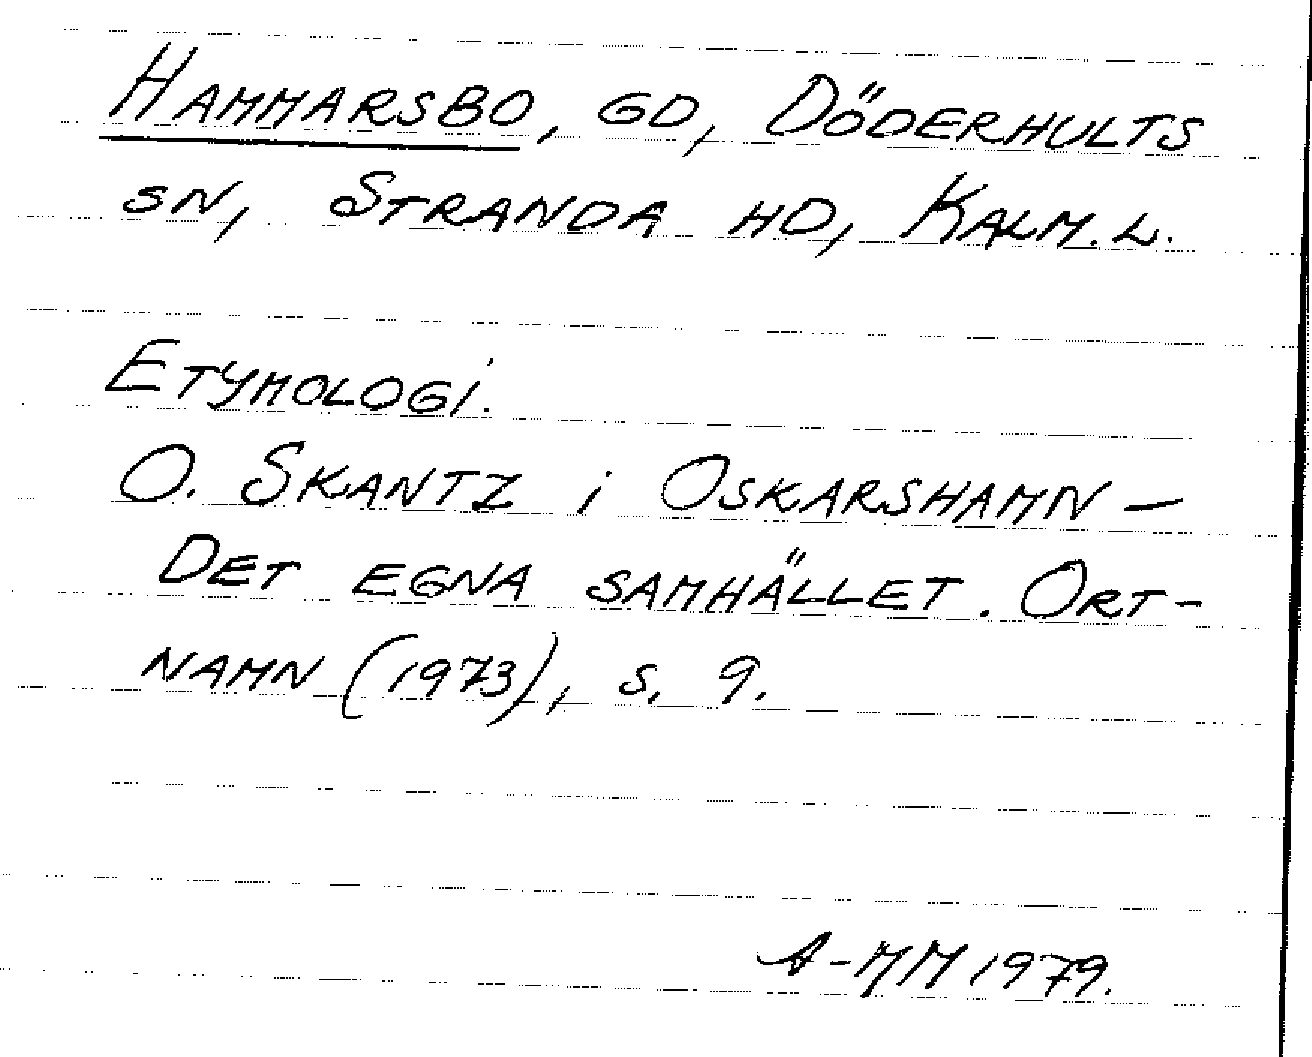 HAMMARSBO, GD, DÖDERHULTS
SN, STRANDA HD, KALM. L.
ETYMOLOGI.
O. SKANTZ i OSKARSHAMN –
DET EGNA SAMHÄLLET. ORT-
NAMN (1973), S. 9.
A-MM 1979.